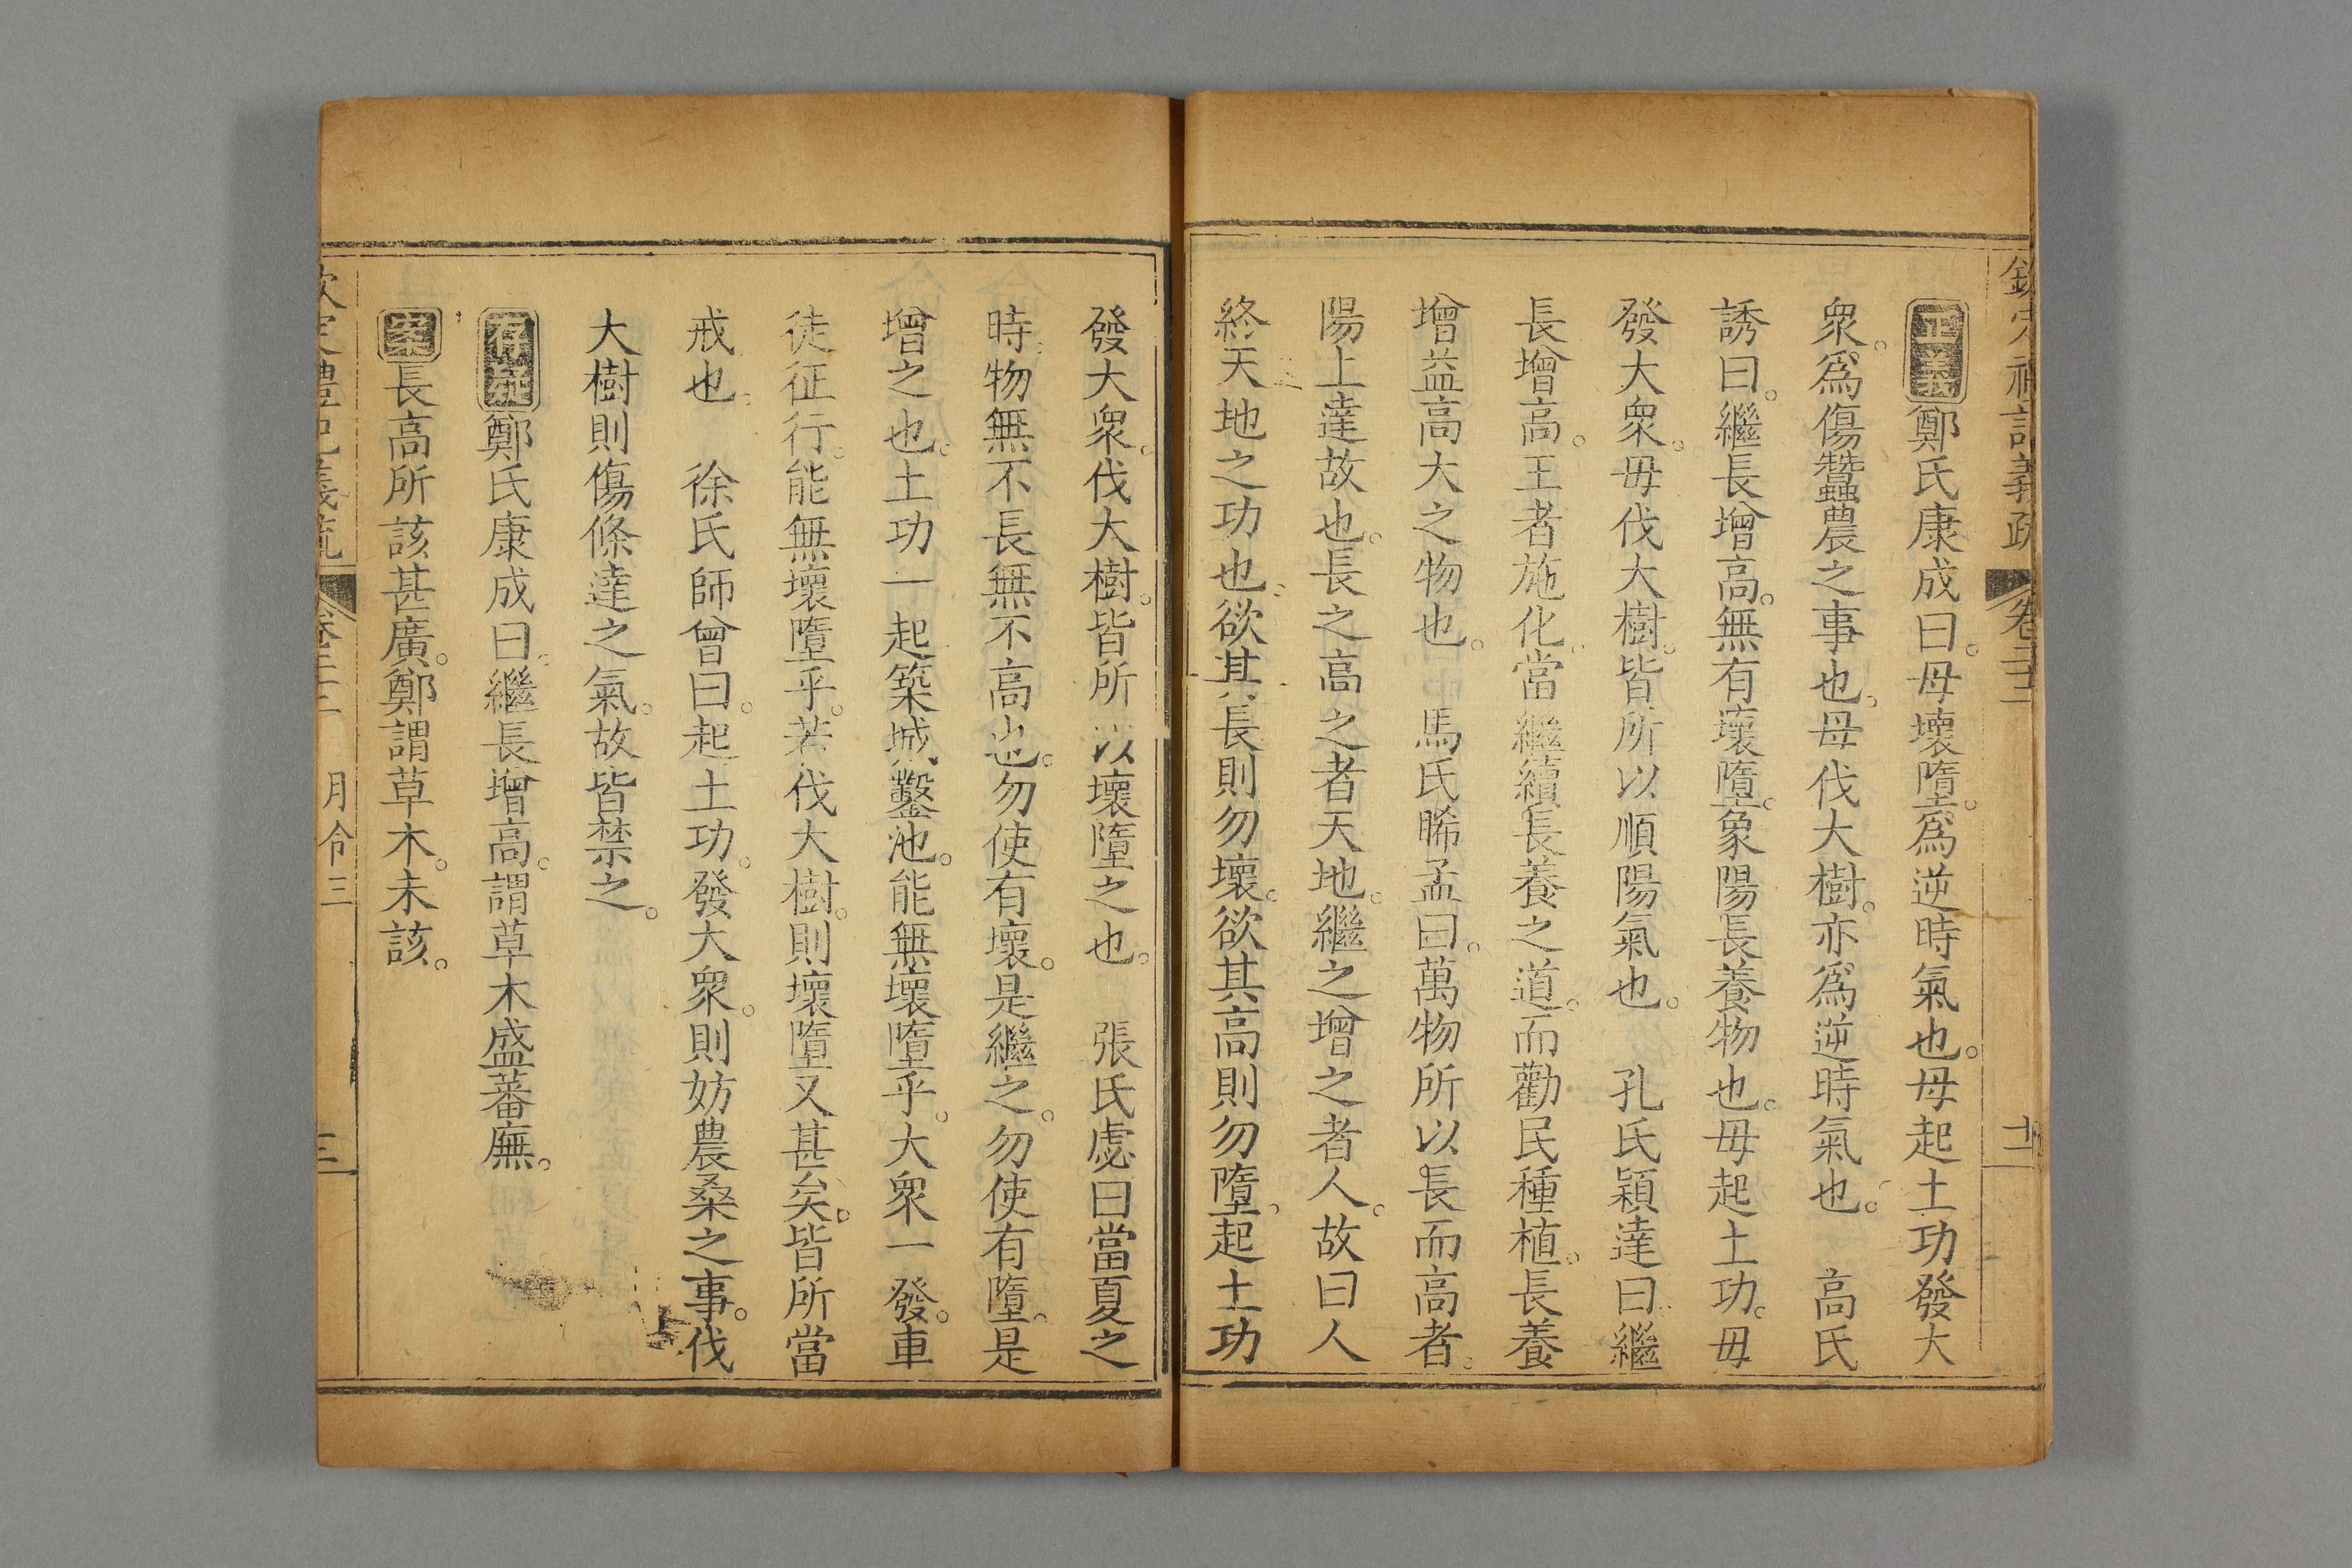 欽定禮記義疏 卷二十二 十二
正義鄭氏康成曰。毋壞墮。爲逆時氣也。毋起土功發大
衆。爲傷蠶農之事也。毋伐大樹。亦爲逆時氣也。 高氏
誘曰。繼長增高。無有壞墮。象陽長養物也。毋起土功。毋
發大衆。毋伐大樹。皆所以順陽氣也。 孔氏穎達曰。繼
長增高。王者施化。當繼續長養之道。而勸民種植。長養
增益高大之物也。 馬氏睎孟曰。萬物所以長而高者。
陽上達故也。長之高之者天地。繼之增之者人。故曰人
終天地之功也。欲其長則勿壞。欲其高則勿墮。起土功
發大衆。伐大樹。皆所以壞墮之也。 張氏虙曰當夏之
時。物無不長無不高也。勿使有壞。是繼之。勿使有墮。是
增之也。土功一起築城鑿池。能無壞墮乎。大衆一發。車
徒征行。能無壞墮乎。若伐大樹。則壞墮又甚矣。皆所當
戒也。 徐氏師曾曰。起土功。發大衆。則妨農桑之事。伐
大樹則傷條達之氣。故皆禁之。
存疑鄭氏康成曰。繼長增高。謂草木盛蕃廡。
案長高所該甚廣。鄭謂草木。未該。
欽定禮記義疏 卷二十二 月令三